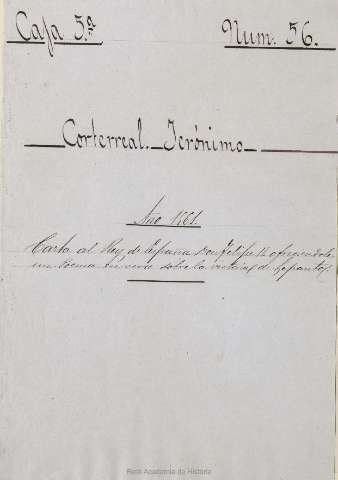 Caja 5.ª Num. 56.
Corterreal. Jerónimo
Año 1561.
Carta al Rey de España Don Felipe II ofreciendole
un Poema en verso sobre la victoria de Lepanto.
Real Academia de Historia